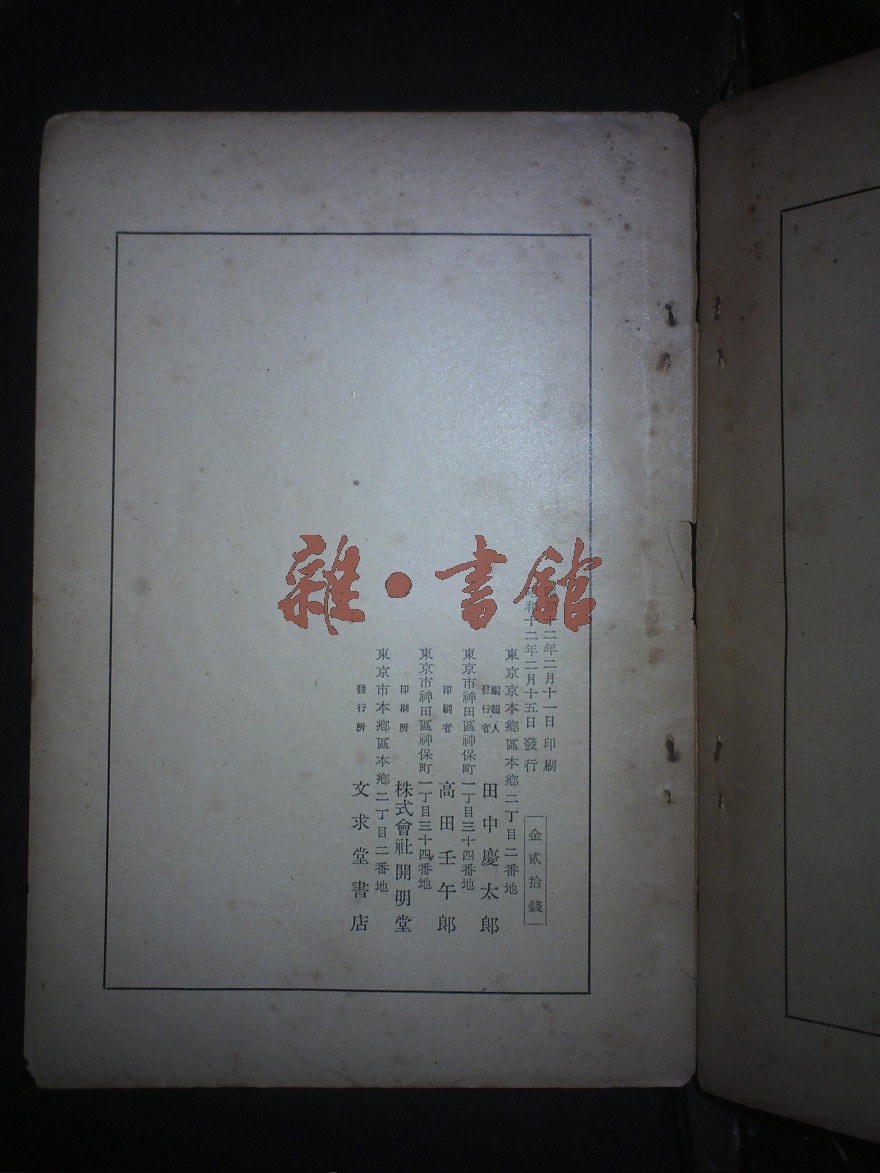 雜·書館
十二年二月十一日印刷
和十二年二月十五日發行
金貳拾錢
東京京本鄉區本鄉二丁目二番地
編輯人
發行者 田中慶太郎
東京市神田區神保町一丁目三十四番地
印刷者 高田壬午郎
東京市神田區神保町一丁目三十四番地
印刷所 株式會社開明堂
東京市本鄉區本鄉二丁目二番地
發行所 文求堂書店